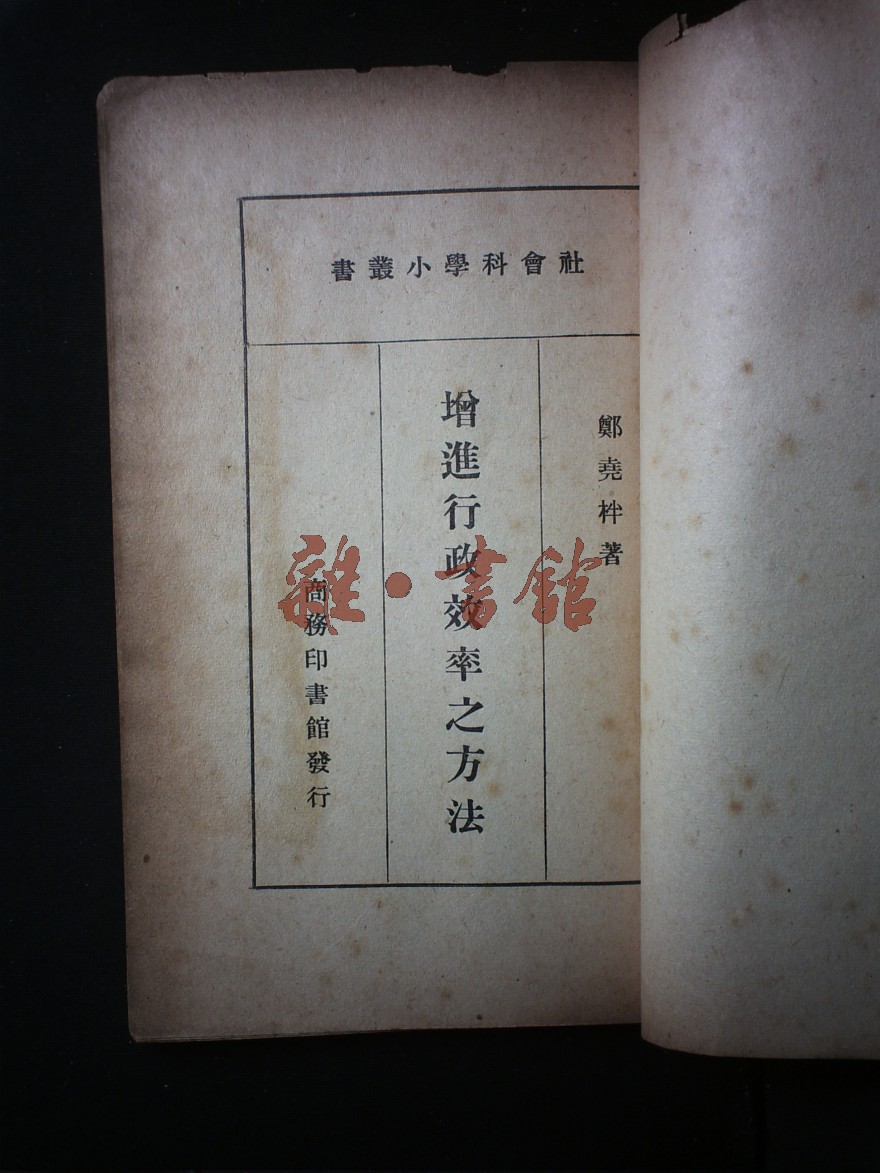 社會科學小叢書
鄭堯柈著
增進行政效率之方法
商務印書館發行
雜·書館